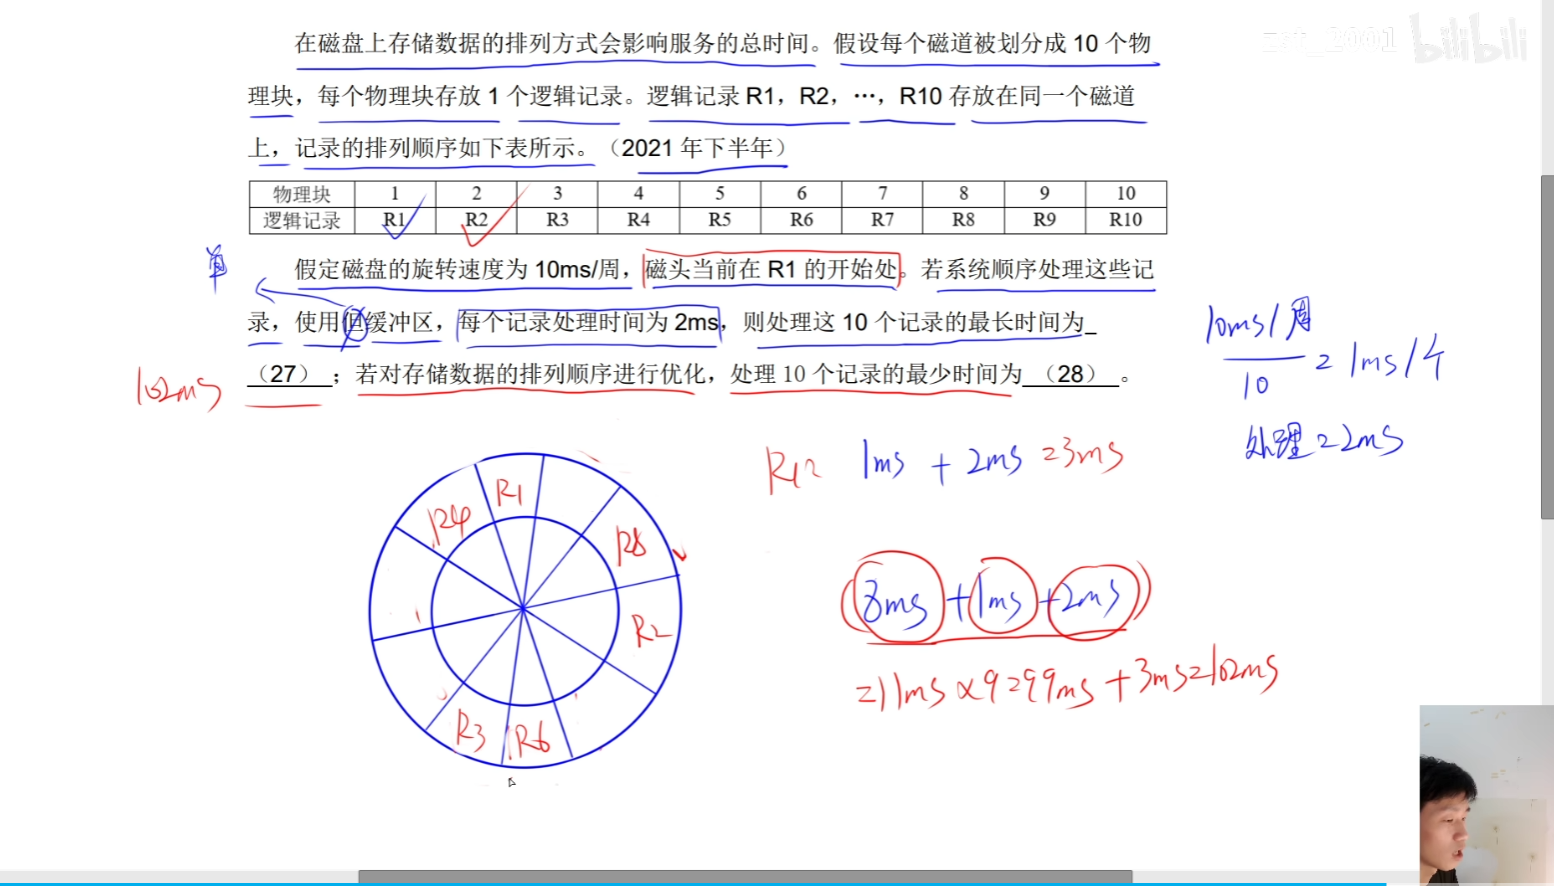 bilibili
在磁盘上存储数据的排列方式会影响服务的总时间。假设每个磁道被划分成 10 个物
理块，每个物理块存放 1 个逻辑记录。逻辑记录 R1，R2，…，R10 存放在同一个磁道
上，记录的排列顺序如下表所示。（2021 年下半年）
物理块 1 2 3 4 5 6 7 8 9 10
逻辑记录 R1 R2 R3 R4 R5 R6 R7 R8 R9 R10
单
假定磁盘的旋转速度为 10ms/周，磁头当前在 R1 的开始处。若系统顺序处理这些记
录，使用但缓冲区，每个记录处理时间为 2ms，则处理这 10 个记录的最长时间为_
102ms （27）；若对存储数据的排列顺序进行优化，处理 10 个记录的最少时间为 （28） 。
10ms/周
10 = 1ms/个
处理=2ms
R1: 1ms + 2ms =3ms
R1
R4
R8
R2
R3
R6
(8ms+1ms+2ms)
=11ms×9=99ms+3ms=102ms